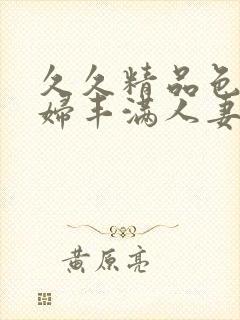 久久精品色
婦丰满人妻
黄原亮